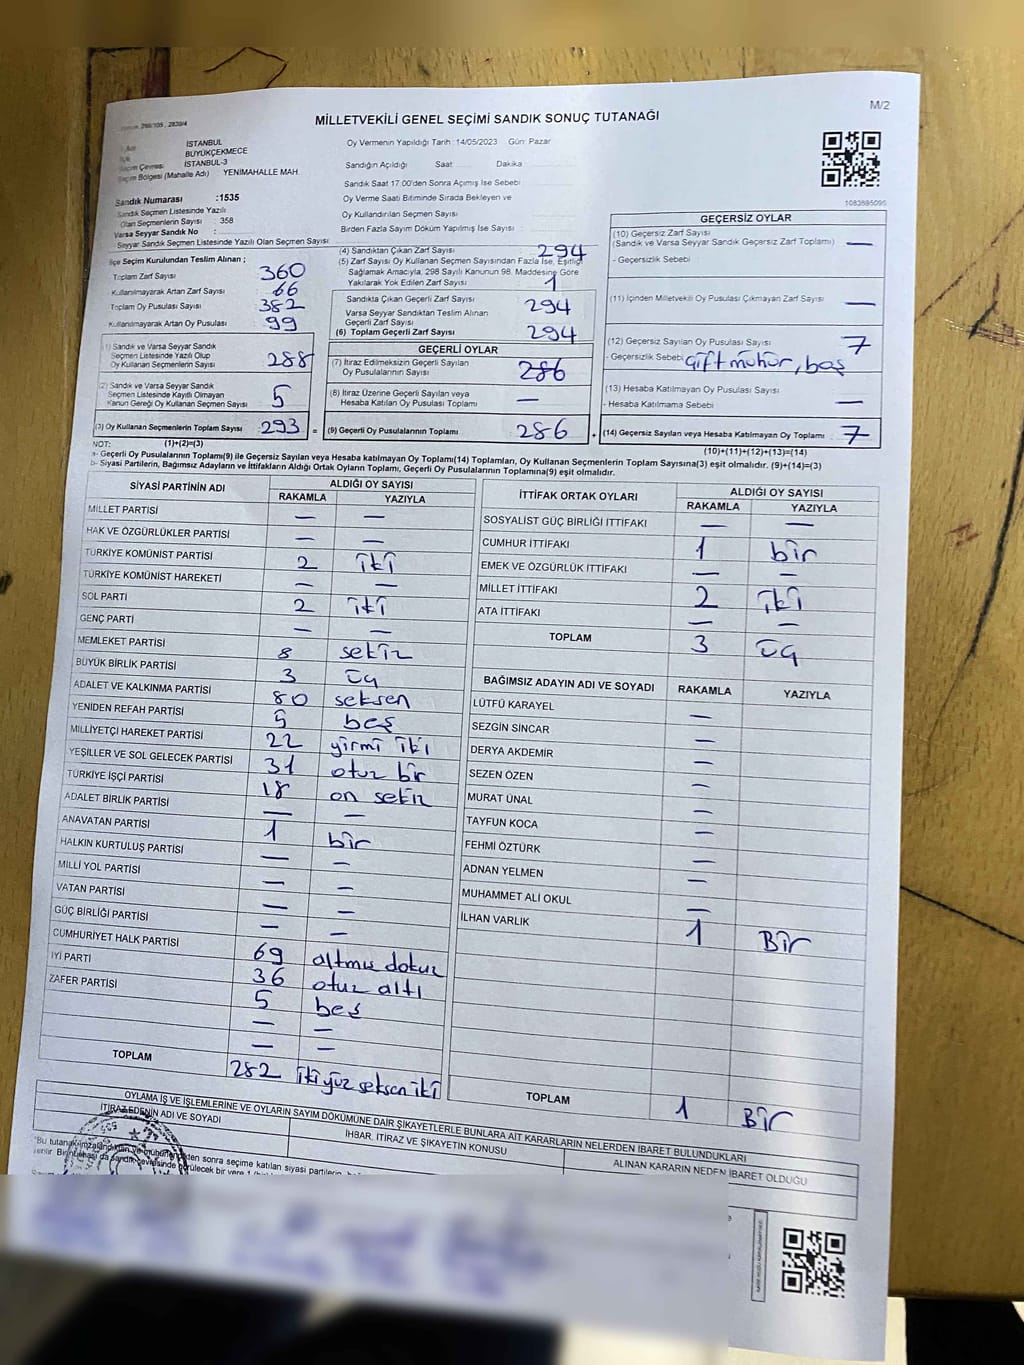 M/2
MİLLETVEKİLİ GENEL SEÇİMİ SANDIK SONUÇ TUTANAĞI
İSTANBUL
BÜYÜKÇEKMECE
İSTANBUL-3
Seçim Bölgesi (Mahalle Adı) YENİMAHALLE MAH.
Sandık Numarası :1535
Sandık Seçmen Listesinde Yazılı
Olan Seçmenlerin Sayısı : 358
Varsa Seyyar Sandık No :
Seyyar Sandık Seçmen Listesinde Yazılı Olan Seçmen Sayısı
Oy Vermenin Yapıldığı Tarih :14/05/2023 Gün: Pazar
Sandığın Açıldığı Saat Dakika
Sandık Saat 17:00'den Sonra Açımış İse Sebebi
Oy Verme Saati Bitiminde Sırada Bekleyen ve
Oy Kullandırılan Seçmen Sayısı
Birden Fazla Sayım Döküm Yapılmış İse Sayısı
1083885095
İlçe Seçim Kurulundan Teslim Alınan ;
Toplam Zarf Sayısı 360
Kullanılmayarak Artan Zarf Sayısı 66
Toplam Oy Pusulası Sayısı 382
Kullanılmayarak Artan Oy Pusulası 99
(1) Sandık ve Varsa Seyyar Sandık
Seçmen Listesinde Yazılı Olup
Oy Kullanan Seçmenlerin Sayısı 288
(2) Sandık ve Varsa Seyyar Sandık
Seçmen Listesinde Kayıtlı Olmayan
Kanun Gereği Oy Kullanan Seçmen Sayısı 5
(3) Oy Kullanan Seçmenlerin Toplam Sayısı 293 =
(4) Sandıktan Çıkan Zarf Sayısı 294
(5) Zarf Sayısı Oy Kullanan Seçmen Sayısından Fazla İse, Eşitliği
Sağlamak Amacıyla, 298 Sayılı Kanunun 98. Maddesine Göre
Yakılarak Yok Edilen Zarf Sayısı 1
Sandıkta Çıkan Geçerli Zarf Sayısı 294
Varsa Seyyar Sandıktan Teslim Alınan
Geçerli Zarf Sayısı
(6) Toplam Geçerli Zarf Sayısı 294
GEÇERLİ OYLAR
(7) İtiraz Edilmeksizin Geçerli Sayılan
Oy Pusulalarının Sayısı 286
(8) İtiraz Üzerine Geçerli Sayılan veya
Hesaba Katılan Oy Pusulası Toplamı —
(9) Geçerli Oy Pusulalarının Toplamı 286 +
GEÇERSİZ OYLAR
(10) Geçersiz Zarf Sayısı
(Sandık ve Varsa Seyyar Sandık Geçersiz Zarf Toplamı) —
- Geçersizlik Sebebi
(11) İçinden Milletvekili Oy Pusulası Çıkmayan Zarf Sayısı —
(12) Geçersiz Sayılan Oy Pusulası Sayısı 7
- Geçersizlik Sebebi çift mühür, boş
(13) Hesaba Katılmayan Oy Pusulası Sayısı —
- Hesaba Katılmama Sebebi
(14) Geçersiz Sayılan veya Hesaba Katılmayan Oy Pusulası Toplamı 7
NOT: (1)+(2)=(3) (10)+(11)+(12)+(13)=(14)
a- Geçerli Oy Pusulalarının Toplamı(9) ile Geçersiz Sayılan veya Hesaba katılmayan Oy Toplamı(14) Toplamları, Oy Kullanan Seçmenlerin Toplam Sayısına(3) eşit olmalıdır. (9)+(14)=(3)
b- Siyasi Partilerin, Bağımsız Adayların ve İttifakların Aldığı Ortak Oyların Toplamı, Geçerli Oy Pusulalarının Toplamına(9) eşit olmalıdır.
SİYASİ PARTİNİN ADI ALDIĞI OY SAYISI
RAKAMLA YAZIYLA
MİLLET PARTİSİ — —
HAK VE ÖZGÜRLÜKLER PARTİSİ — —
TÜRKİYE KOMÜNİST PARTİSİ 2 iki
TÜRKİYE KOMÜNİST HAREKETİ — —
SOL PARTİ 2 iki
GENÇ PARTİ — —
MEMLEKET PARTİSİ 8 sekiz
BÜYÜK BİRLİK PARTİSİ 3 üç
ADALET VE KALKINMA PARTİSİ 80 seksen
YENİDEN REFAH PARTİSİ 5 beş
MİLLİYETÇİ HAREKET PARTİSİ 22 yirmi iki
YEŞİLLER VE SOL GELECEK PARTİSİ 31 otuz bir
TÜRKİYE İŞÇİ PARTİSİ 18 on sekiz
ADALET BİRLİK PARTİSİ — —
ANAVATAN PARTİSİ 1 bir
HALKIN KURTULUŞ PARTİSİ — —
MİLLİ YOL PARTİSİ — —
VATAN PARTİSİ — —
GÜÇ BİRLİĞİ PARTİSİ — —
CUMHURİYET HALK PARTİSİ 69 altmış dokuz
İYİ PARTİ 36 otuz altı
ZAFER PARTİSİ 5 beş
— —
— —
TOPLAM 282 iki yüz seksen iki
İTTİFAK ORTAK OYLARI ALDIĞI OY SAYISI
RAKAMLA YAZIYLA
SOSYALİST GÜÇ BİRLİĞİ İTTİFAKI — —
CUMHUR İTTİFAKI 1 bir
EMEK VE ÖZGÜRLÜK İTTİFAKI — —
MİLLET İTTİFAKI 2 iki
ATA İTTİFAKI — —
TOPLAM 3 üç
BAĞIMSIZ ADAYIN ADI VE SOYADI RAKAMLA YAZIYLA
LÜTFÜ KARAYEL —
SEZGİN SİNCAR —
DERYA AKDEMİR —
SEZEN ÖZEN —
MURAT ÜNAL —
TAYFUN KOCA —
FEHMİ ÖZTÜRK —
ADNAN YELMEN —
MUHAMMET ALİ OKUL —
İLHAN VARLIK 1 Bir
TOPLAM 1 Bir
OYLAMA İŞ VE İŞLEMLERİNE VE OYLARIN SAYIM DÖKÜMÜNE DAİR ŞİKAYETLERLE BUNLARA AİT KARARLARIN NELERDEN İBARET BULUNDUKLARI
İTİRAZ EDENİN ADI VE SOYADI
İHBAR, İTİRAZ VE ŞİKAYETİN KONUSU
ALINAN KARARIN NEDEN İBARET OLDUĞU